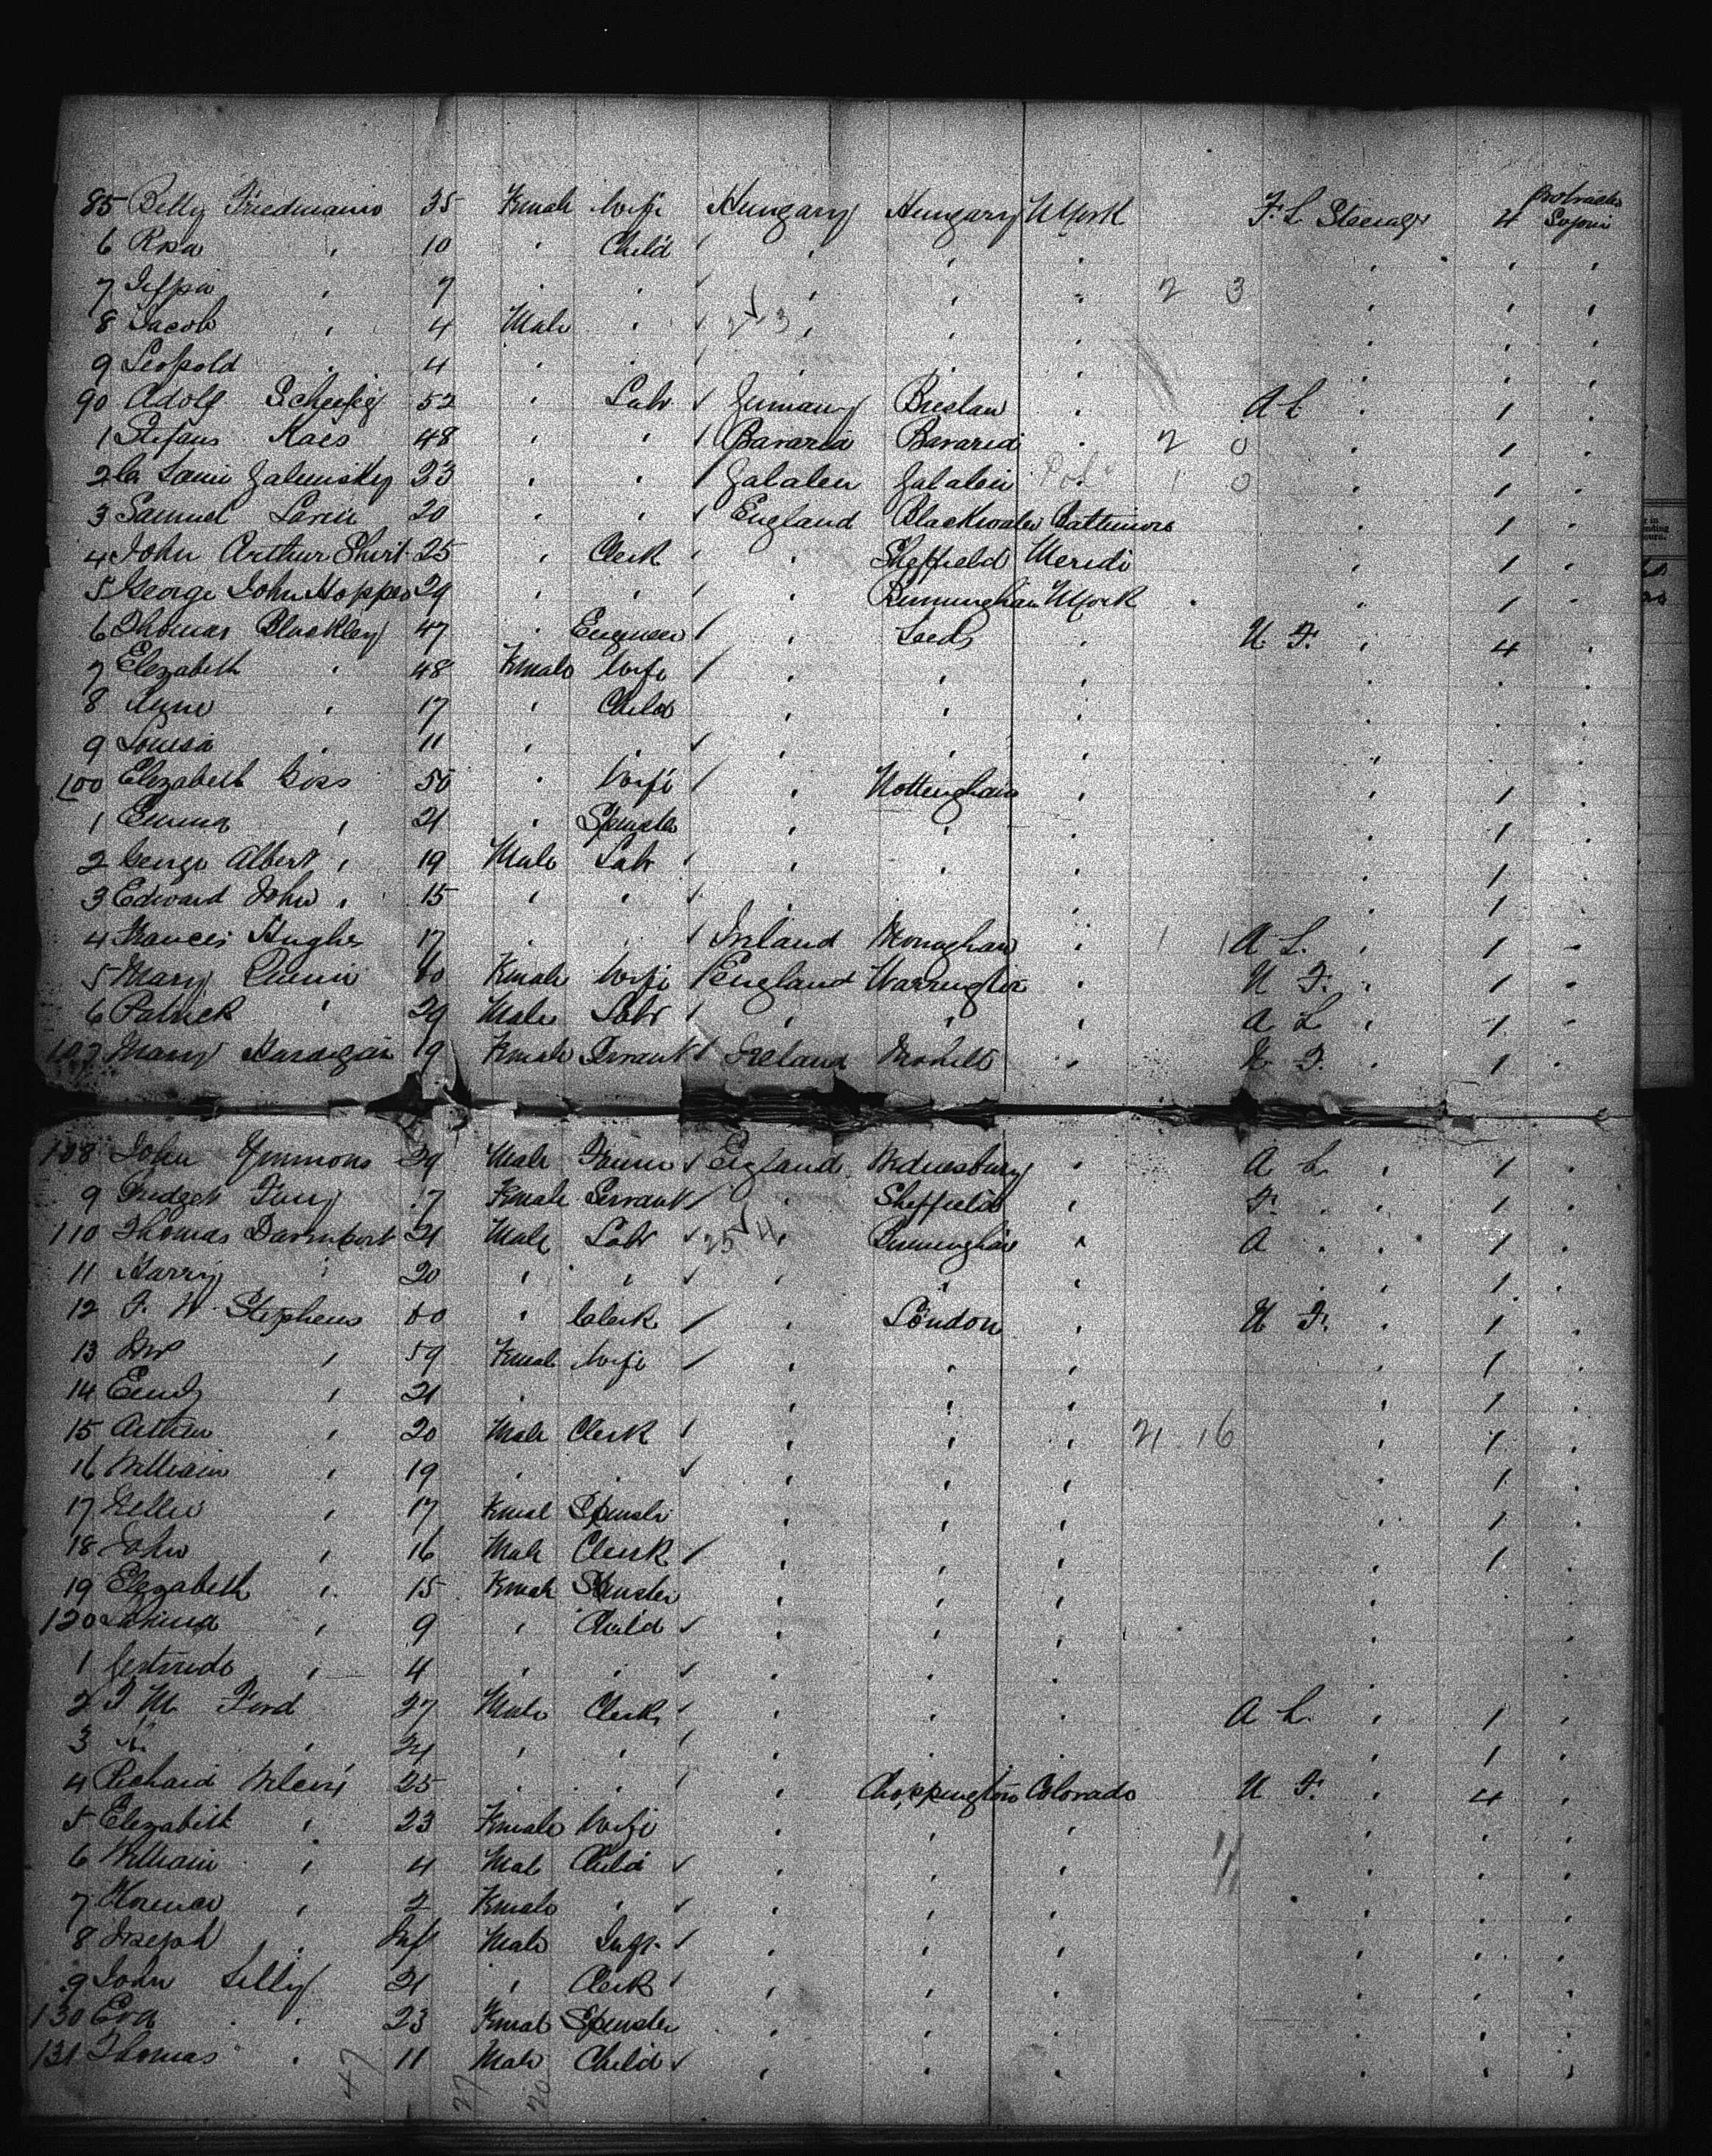 85 Betty Friedmann 35 Female Wife Hungary Hungary N York F. L Steerage 4 Protracted Sojourn
6 Rosa " 10 " Child " " "
7 " 7 " " " " " 2 3
8 Jacob " 4 Male " " " "
9 Leopold " 4 " " " " "
90 Adolf 52 " Labr Germany Breslau " A L " 1 "
1 Stefans Kaes 48 " " Bavaria Bavaria " 2 0 " 1 "
2 Galunsky 23 " " Galalen Galalein Pol 1 0 " 1 "
3 Samuel 20 " " England Blackwater Baltimore " 1 "
4 John Arthur Shirt 25 " Clerk " Sheffield Meridi " 1 "
5 George John Hopper 29 " " " Birmingham N York " 1 "
6 Thomas Blackley 47 " Engineer " Leeds " N F. " 4 "
7 Elezabeth " 48 Female Wife " " "
8 Anne " 17 " Child " " "
9 Louisa " 11 " " " " "
100 Elezabeth Goss 50 " Wife " Nottingham " " 1 "
1 Emma " 21 " Spinster " " " " 1 "
2 George Albert " 19 Male Labr " " " " 1 "
3 Edward John " 15 " " " " " " 1 "
4 Francis Hughes 17 " " Ireland Monaghan " 1 1 A L. " 1 "
5 Mary Quinn 60 Female Wife England Warrington " N F. " 1 "
6 Patrick " 29 Male Labr " " " A L " 1 "
107 Mary 19 Female Servant Ireland Mohill " N F. " 1 "
108 John Gimmons 29 Male England Wednesbury " A L. " 1 "
9 Bridget Fury 17 Female Servant " Sheffield " F. " " 1 "
110 Thomas Davenport 21 Male Labr 25 4 " Birmingham " A " " 1 "
11 Harry " 20 " " " " " " " 1 "
12 F. W. Stephens 60 " Clerk " London " N F. " 1 "
13 Mrs " 59 Female Wife " " " " 1 "
14 Emily " 21 " " " " " 1 "
15 Arthur " 20 Male Clerk " " " 21 16 " 1 "
16 William " 19 " " " " " " 1 "
17 Nellie " 17 Female Spinster " " " " 1 "
18 John " 16 Male Clerk " " " " 1 "
19 Elezabeth " 15 Female Spinster " " " "
120 " 9 " Child " " " "
1 Gertrude " 4 " " " " " "
2 F M Ford 27 Male Clerk " " " A L. " 1 "
3 " 24 " " " " " " 1 "
4 Richard 25 " " " Choppington Colorado N F. " 4 "
5 Elezabeth " 23 Female Wife " " " "
6 William " 4 Male Child " " " 11 "
7 Florence " 2 Female " " " " "
8 Joseph " Inf Male Inft " " " "
9 John Lilly 21 " Clerk " " " "
130 Eva " 23 Female Spinster " " " "
131 Thomas " 11 Male Child " " " "
47 27 20